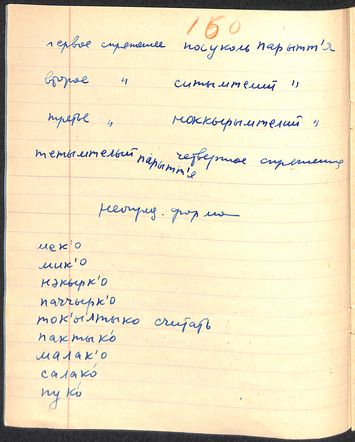 160
первое спряжение посуколь парытт'я
второе " ситымтелий "
третье " ноккырымтелий "
тетымтелый парытт'я четвертое спряжение
неопред. форма
мек'о
мик'о
нэкырк'о
паччырк'о
ток'ылтыко считать
пактыко́
малак'о
салако́
пуко́